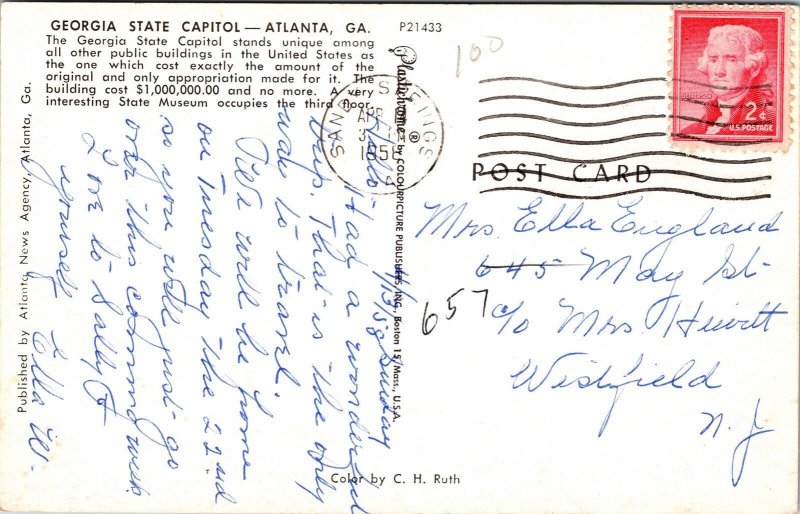 GEORGIA STATE CAPITOL — ATLANTA, GA.
The Georgia State Capitol stands unique among
all other public buildings in the United States as
the one which cost exactly the amount of the
original and only appropriation made for it. The
building cost $1,000,000.00 and no more. A very
interesting State Museum occupies the third floor.
P21433
100
2¢
U.S. POSTAGE
SAND SPRINGS
APR
1958
POST CARD
Plastichrome ® by COLOURPICTURE PUBLISHERS, INC., Boston 15, Mass., U.S.A.
Published by Atlanta News Agency, Atlanta, Ga.
4/13/58 Sunday
Hello
Had a wonderful
trip. That is the only
way to travel.
We will be home
on Tuesday the 22nd
so you will just go
over this coming week
Love to Sally &
yourself
Ella W.
Mrs. Ella England
645 May St.
657
c/o Mrs Hewitt
Westfield
N. J
Color by C. H. Ruth